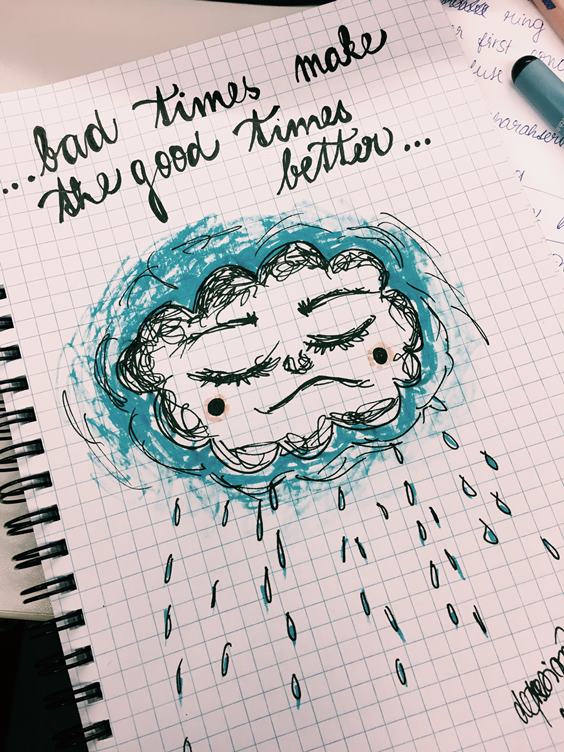 ...bad times make
the good times
better...
ring
first